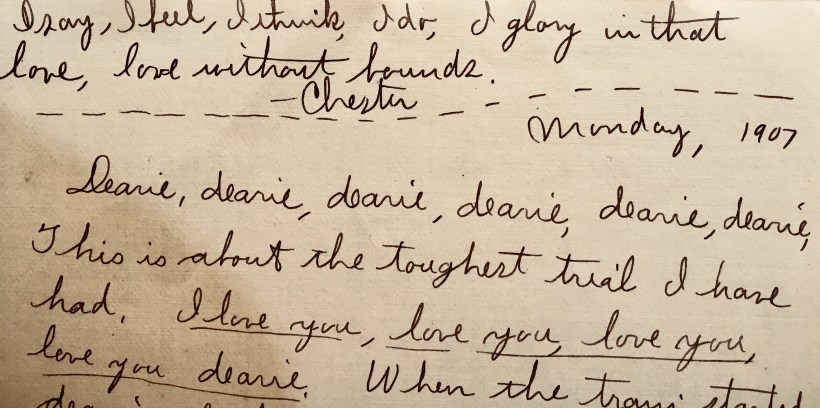 I say, I feel, I think, I do, I glory in that
love, love without bounds.
— Chester
Monday, 1907
Dearie, dearie, dearie, dearie, dearie, dearie,
This is about the toughest trial I have
had. I love you, love you, love you,
love you dearie. When the train started